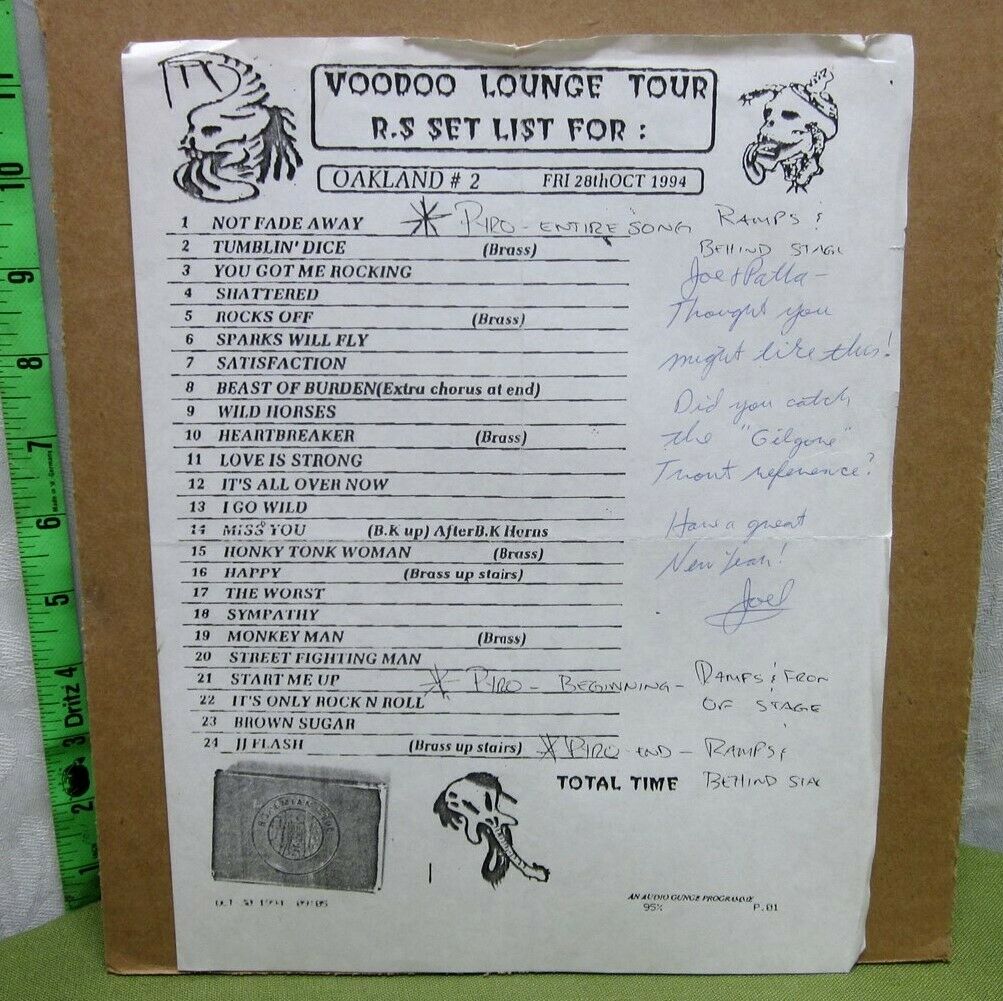 VOODOO LOUNGE TOUR
R.S SET LIST FOR :
OAKLAND # 2 FRI 28thOCT 1994
1 NOT FADE AWAY * PYRO - ENTIRE SONG RAMPS &
BEHIND STAGE
2 TUMBLIN' DICE (Brass)
3 YOU GOT ME ROCKING
4 SHATTERED
5 ROCKS OFF (Brass)
6 SPARKS WILL FLY
7 SATISFACTION
8 BEAST OF BURDEN(Extra chorus at end)
9 WILD HORSES
10 HEARTBREAKER (Brass)
11 LOVE IS STRONG
12 IT'S ALL OVER NOW
13 I GO WILD
14 MISS YOU (B.K up) AfterB.K Horns
15 HONKY TONK WOMAN (Brass)
16 HAPPY (Brass up stairs)
17 THE WORST
18 SYMPATHY
19 MONKEY MAN (Brass)
20 STREET FIGHTING MAN
21 START ME UP * PYRO - BEGINNING - RAMPS & FRON
OF STAGE
22 IT'S ONLY ROCK N ROLL
23 BROWN SUGAR
24 JJ FLASH (Brass up stairs) * PYRO END - RAMPS &
BEHIND STAG
TOTAL TIME
Joe & Patta -
Thought you
might like this!
Did you catch
the "Gilgore"
Trout reference?
Have a great
New Year!
Joel
AN AUDIO GUNGE PROGRAMME
OCT 31 1994 09:05 95% P.01
10
9
8
7
6
5
4
3
2
1
Dritz
Made in W-Germany